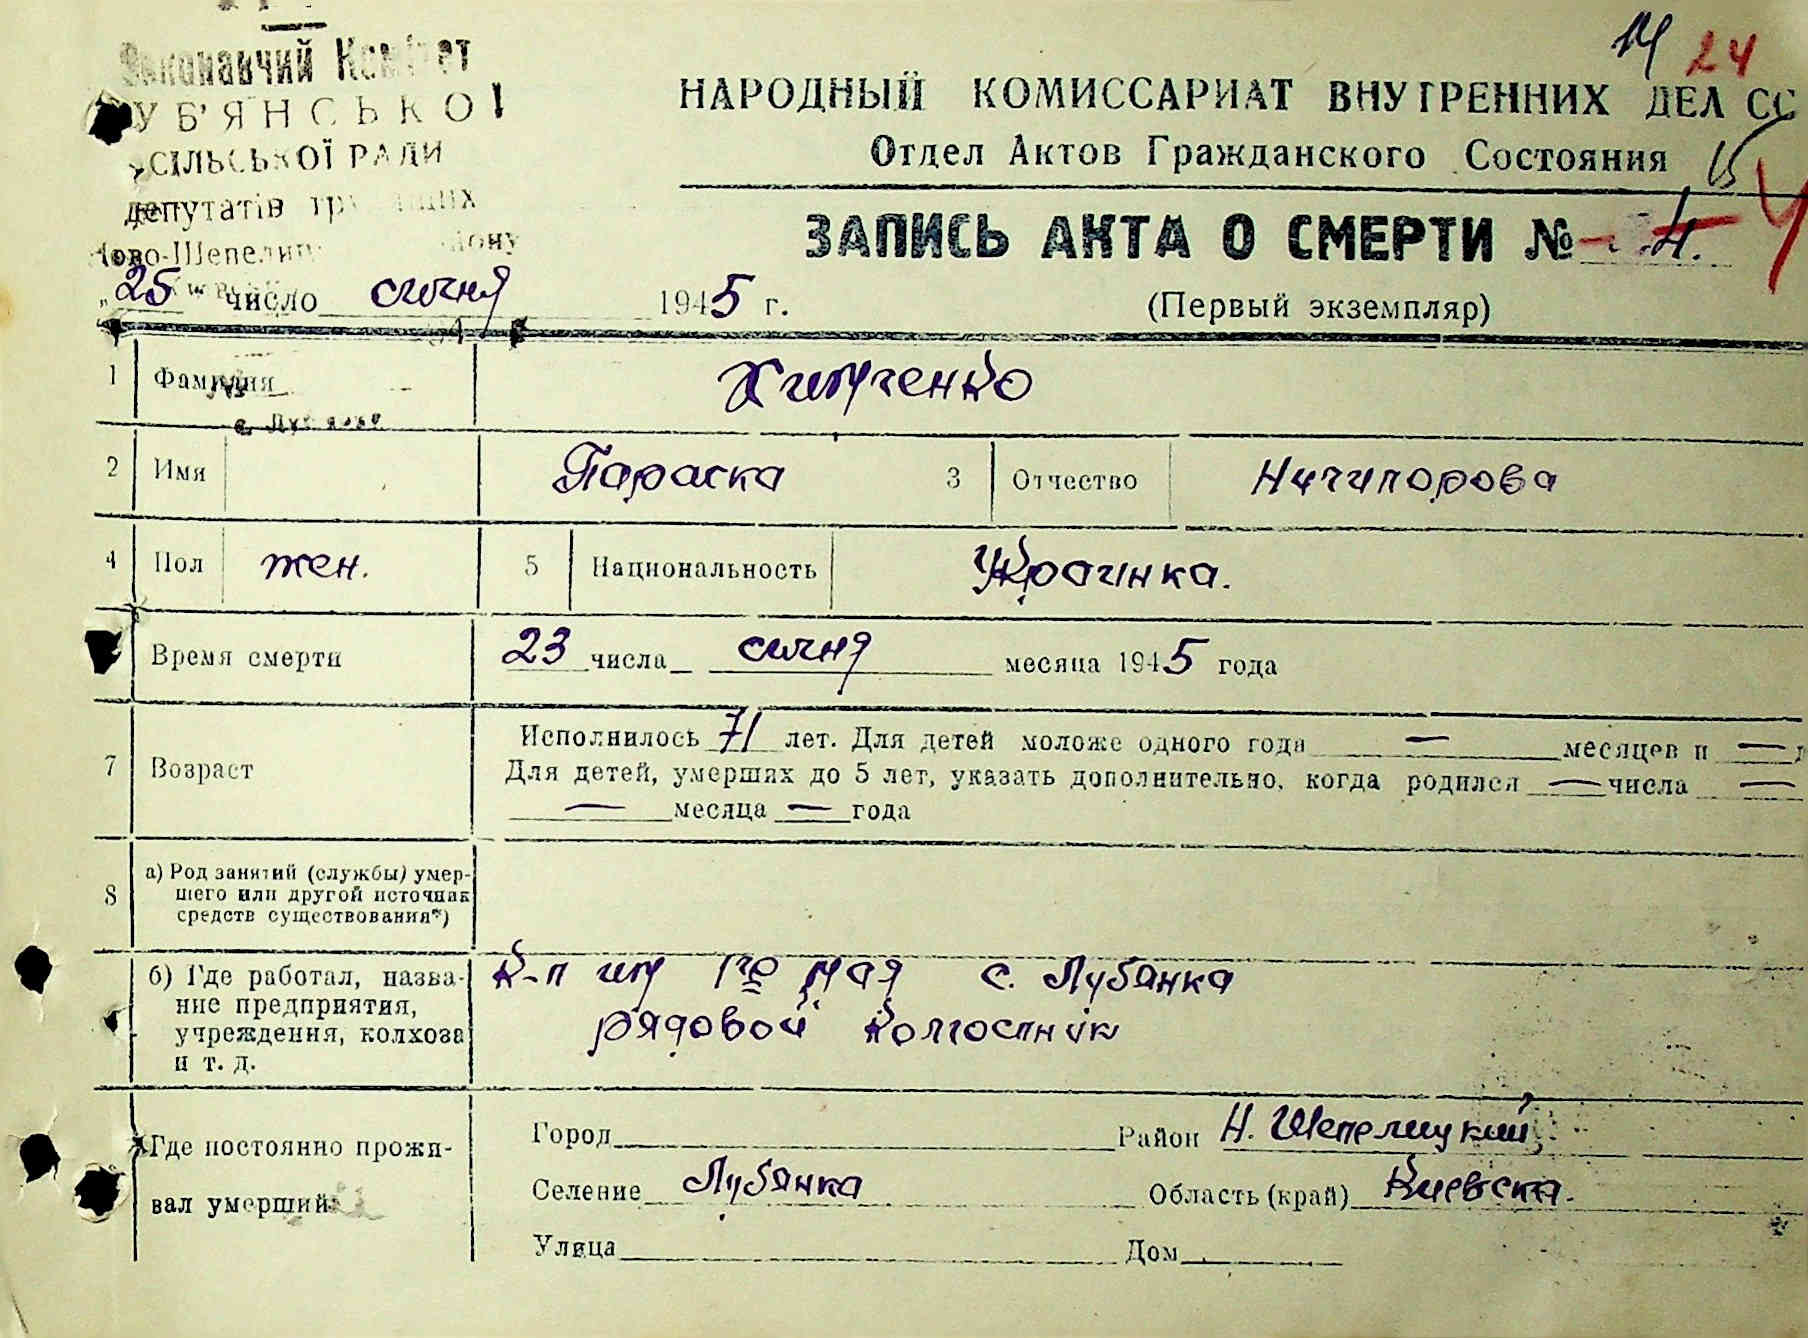 Виконавчий Комітет
ЛУБ'ЯНСЬКОЇ
СІЛЬСЬКОЇ РАДИ
депутатів трудящих
Ново-Шепелиц району
14 24
15
НАРОДНЫЙ КОМИССАРИАТ ВНУТРЕННИХ ДЕЛ СС
Отдел Актов Гражданского Состояния
ЗАПИСЬ АКТА О СМЕРТИ № 4. 4
(Первый экземпляр)
„25" число січня 1945 г.
1 Фамилия Химченко
с. Лубянка
2 Имя Параска 3 Отчество Ничипорова
4 Пол жен. 5 Национальность Украинка.
Время смерти 23 числа січня месяца 1945 года
7 Возраст Исполнилось 71 лет. Для детей моложе одного года — месяцев и —
Для детей, умерших до 5 лет, указать дополнительно, когда родился — числа —
— месяца — года
8 а) Род занятий (службы) умер-
шего или другой источник
средств существования*)
б) Где работал, назва-
ние предприятия,
учреждения, колхоза
и т. д.
К-п им 1го мая с. Лубянка
рядовой колгоспник
Где постоянно прожи-
вал умерший
Город Район Н. Шепелицкий
Селение Лубянка Область (край) Киевска.
Улица Дом